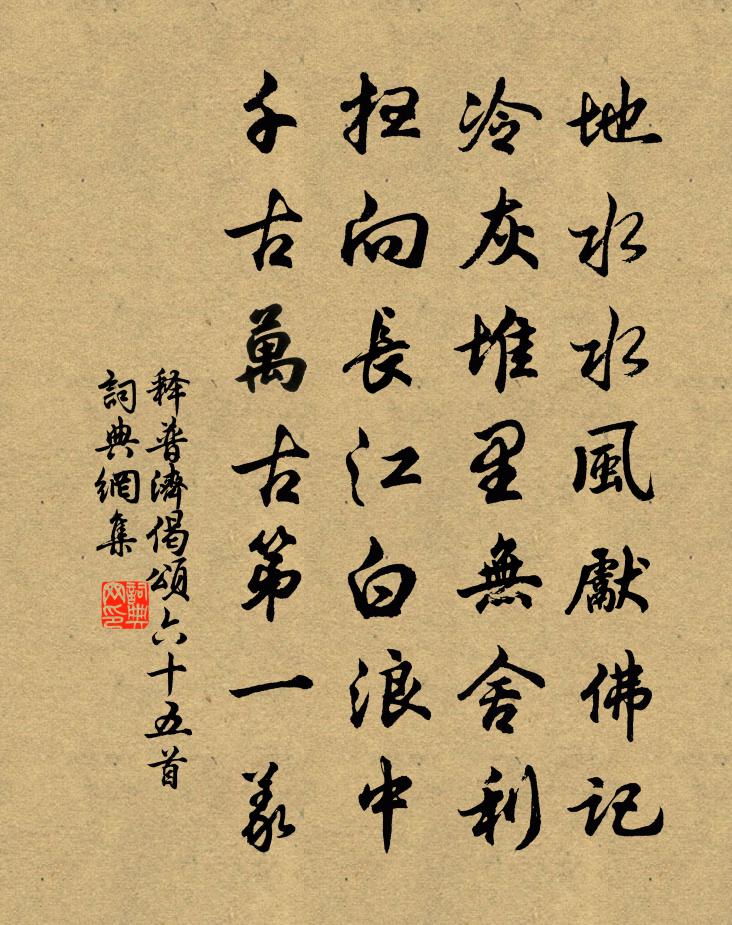 地水水風獻佛記
冷灰堆里無舍利
向長江白浪中
千古萬古第一義
释普濟偈頌六十五首
詞典網集
詞典网印